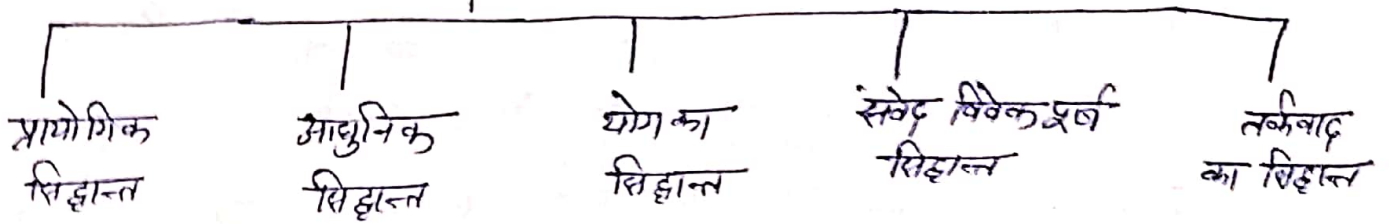 प्रायोगिक सिद्धान्त
आधुनिक सिद्धान्त
योग का सिद्धान्त
संवेद विवेक पूर्ब सिद्धान्त
तर्कवाद का सिद्धान्त